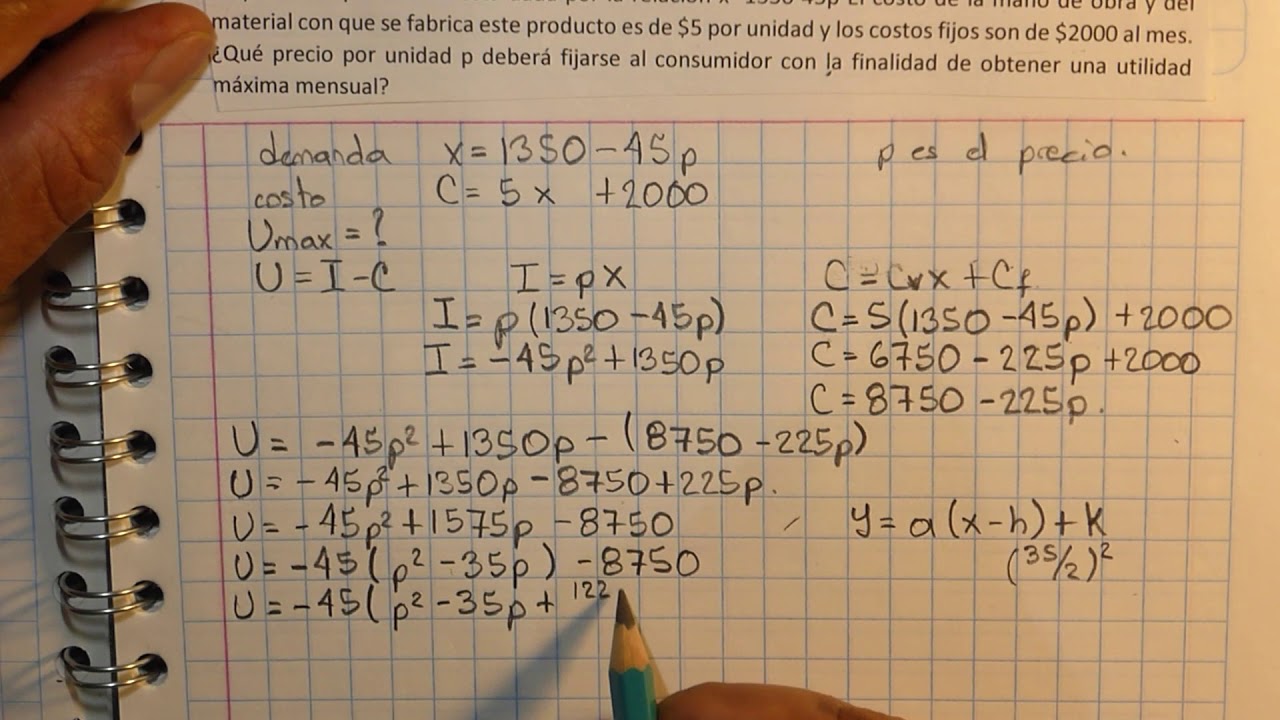 material con que se fabrica este producto es de $5 por unidad y los costos fijos son de $2000 al mes.
¿Qué precio por unidad p deberá fijarse al consumidor con la finalidad de obtener una utilidad
máxima mensual?
demanda x=1350-45p p es el precio.
costo C=5x +2000
Umax=?
U=I-C I=px C=Cvx+Cf
I=p(1350-45p) C=5(1350-45p)+2000
I=-45p²+1350p C=6750-225p+2000
C=8750-225p.
U=-45p²+1350p-(8750-225p)
U=-45p²+1350p-8750+225p.
U=-45p²+1575p-8750 y=a(x-h)+k
U=-45(p²-35p)-8750 (35/2)²
U=-45(p²-35p+122